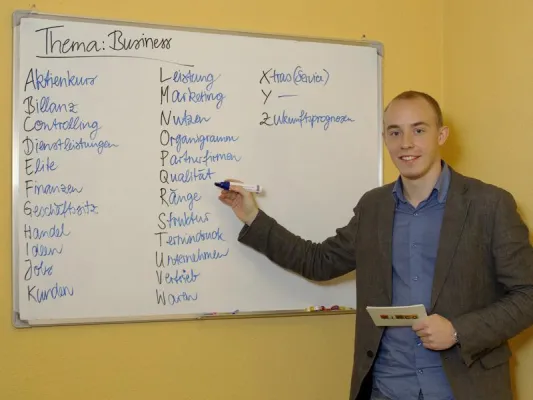 Thema: Business
Aktienkurs
Billanz
Controlling
Dienstleistungen
Elite
Finanzen
Geschäftssitz
Handel
Ideen
Jobs
Kunden
Leistung
Marketing
Nutzen
Organigramm
Partnerfirmen
Qualität
Ränge
Struktur
Termindruck
Unternehmen
Vertrieb
Waren
X-tras (Service)
Y —
Zukunftsprognosen